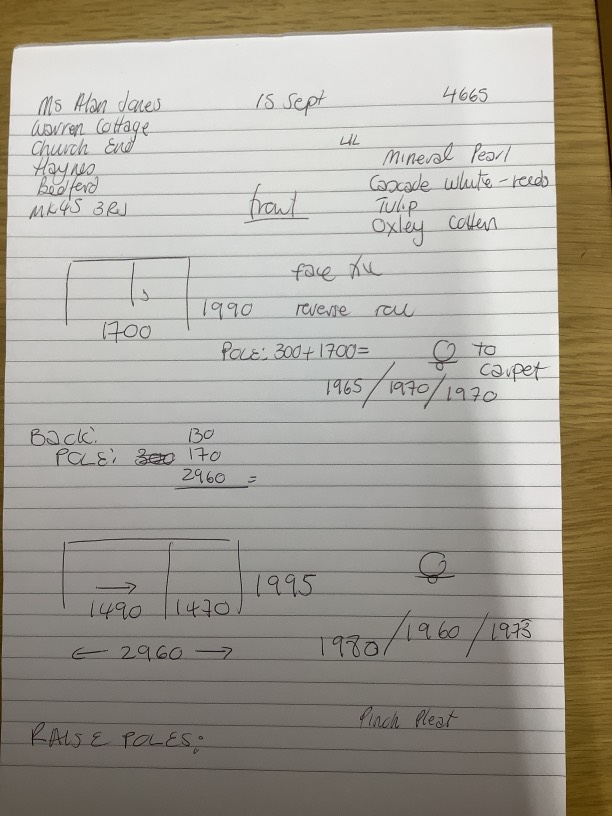 Ms Alan Jones
15 Sept
4665
Warren Cottage
Church End
Haynes
Bedford
MK45 3RJ
Mineral Pearl
Cascade White - reeds
Tulip
Oxley
front
face fix
1990
reverse roll
1700
POLE: 300 + 1700 =
to carpet
1965 / 1970 / 1970
Back:
130
POLE: 300 170
2960 =
1995
1490
1470
← 2960 →
1980 / 1960 / 1973
Pinch Pleat
RAISE POLES: